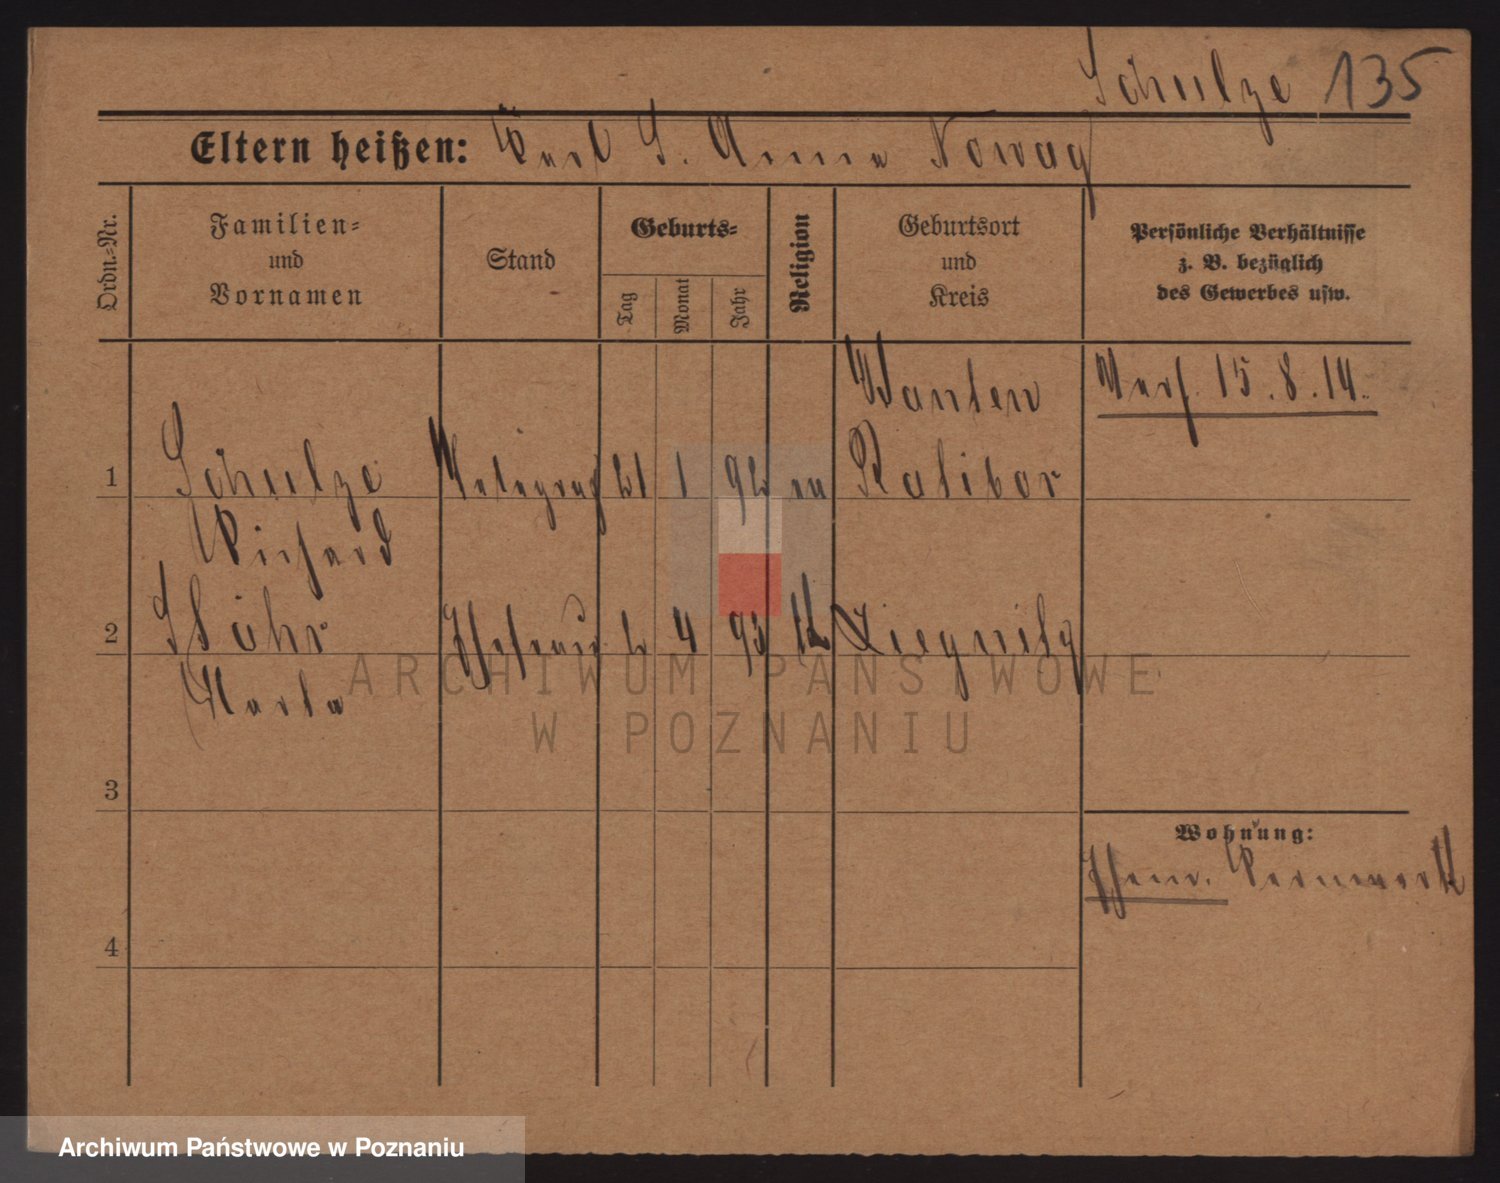 Schulze 135
Eltern heißen: Karl S. Anna Nowag
Ordn.-Nr.
Familien-
und
Vornamen
Stand
Geburts-
Tag
Monat
Jahr
Religion
Geburtsort
und
Kreis
Persönliche Verhältnisse
z. B. bezüglich
des Gewerbes usw.
Verh. 15.8.14.
1 Schulze 21 1 92 ev Ratibor
Richard
2 Stöhr Ehefrau 2 4 93 Liegnitz
Marta
3
Wohnung:
4
ARCHIWUM PAŃSTWOWE
W POZNANIU
Archiwum Państwowe w Poznaniu